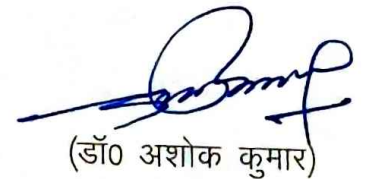 (डॉ0 अशोक कुमार)